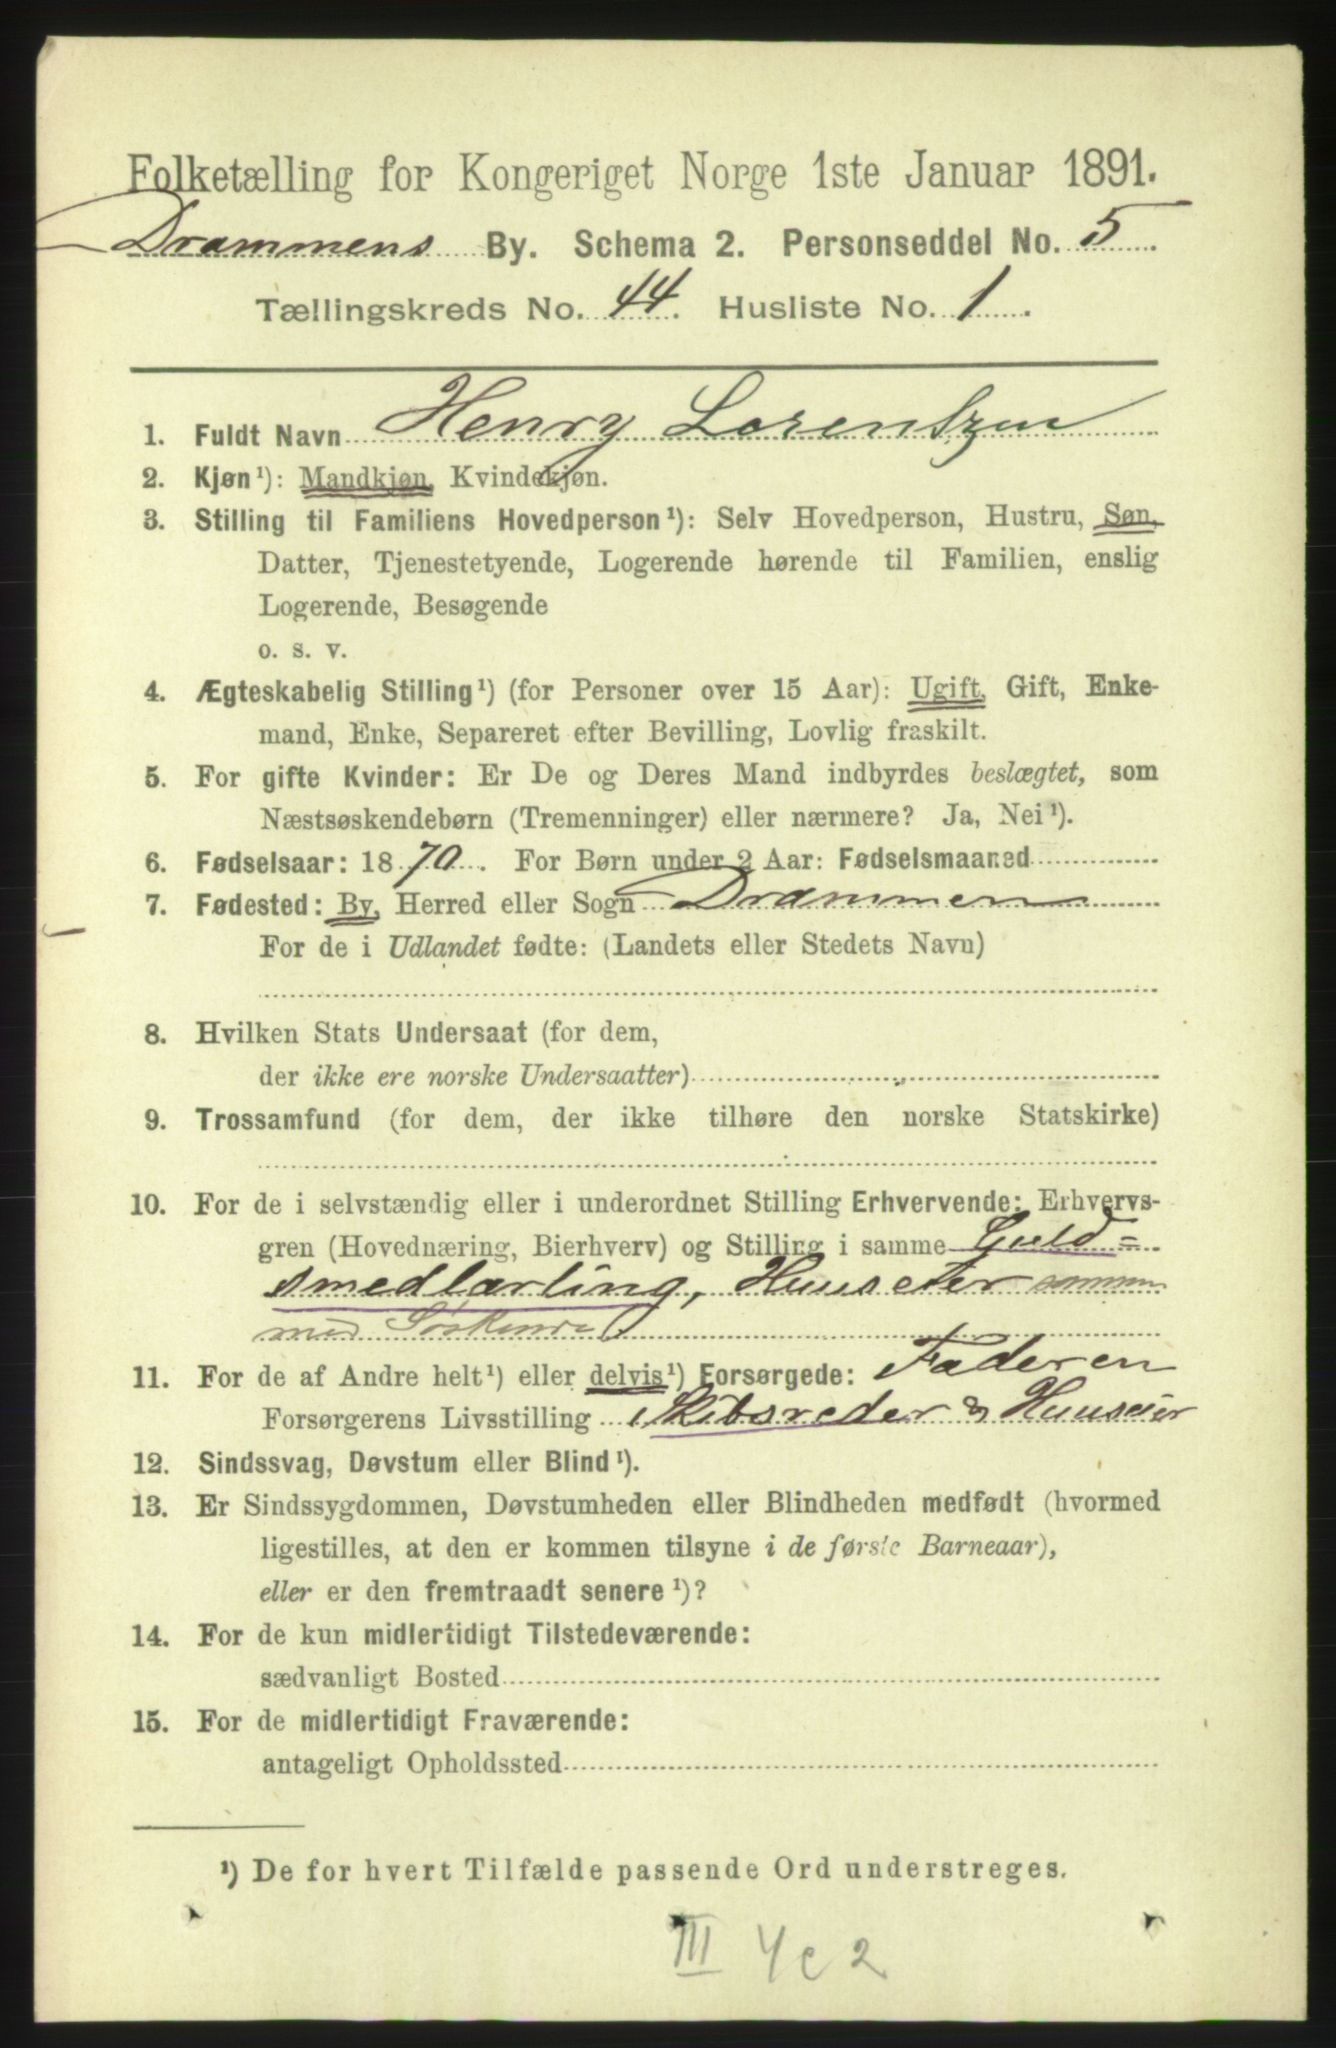 Folketælling for Kongeriget Norge 1ste Januar 1891.
Drammens By. Schema 2. Personseddel No. 5
Tællingskreds No. 44. Husliste No. 1
1. Fuldt Navn Henry Lorentzen
2. Kjøn¹): Mandkjøn, Kvindekjøn.
3. Stilling til Familiens Hovedperson¹): Selv Hovedperson, Hustru, Søn,
Datter, Tjenestetyende, Logerende hørende til Familien, enslig
Logerende, Besøgende
o. s. v.
4. Ægteskabelig Stilling¹) (for Personer over 15 Aar): Ugift, Gift, Enke-
mand, Enke, Separeret efter Bevilling, Lovlig fraskilt.
5. For gifte Kvinder: Er De og Deres Mand indbyrdes beslægtet, som
Næstsøskendebørn (Tremenninger) eller nærmere? Ja, Nei¹).
6. Fødselsaar: 1870. For Børn under 2 Aar: Fødselsmaaned
7. Fødested: By, Herred eller Sogn Drammen
For de i Udlandet fødte: (Landets eller Stedets Navn)
8. Hvilken Stats Undersaat (for dem,
der ikke ere norske Undersaatter)
9. Trossamfund (for dem, der ikke tilhøre den norske Statskirke)
10. For de i selvstændig eller i underordnet Stilling Erhvervende: Erhvervs-
gren (Hovednæring, Bierhverv) og Stilling i samme Guld=
smedlærling, Huuseier sammen
med Søskende
11. For de af Andre helt¹) eller delvis¹) Forsørgede: Faderen
Forsørgerens Livsstilling Skibsreder & Huuseier
12. Sindssvag, Døvstum eller Blind¹).
13. Er Sindssygdommen, Døvstumheden eller Blindheden medfødt (hvormed
ligestilles, at den er kommen tilsyne i de første Barneaar),
eller er den fremtraadt senere¹)?
14. For de kun midlertidigt Tilstedeværende:
sædvanligt Bosted
15. For de midlertidigt Fraværende:
antageligt Opholdssted
¹) De for hvert Tilfælde passende Ord understreges.
III 4c2